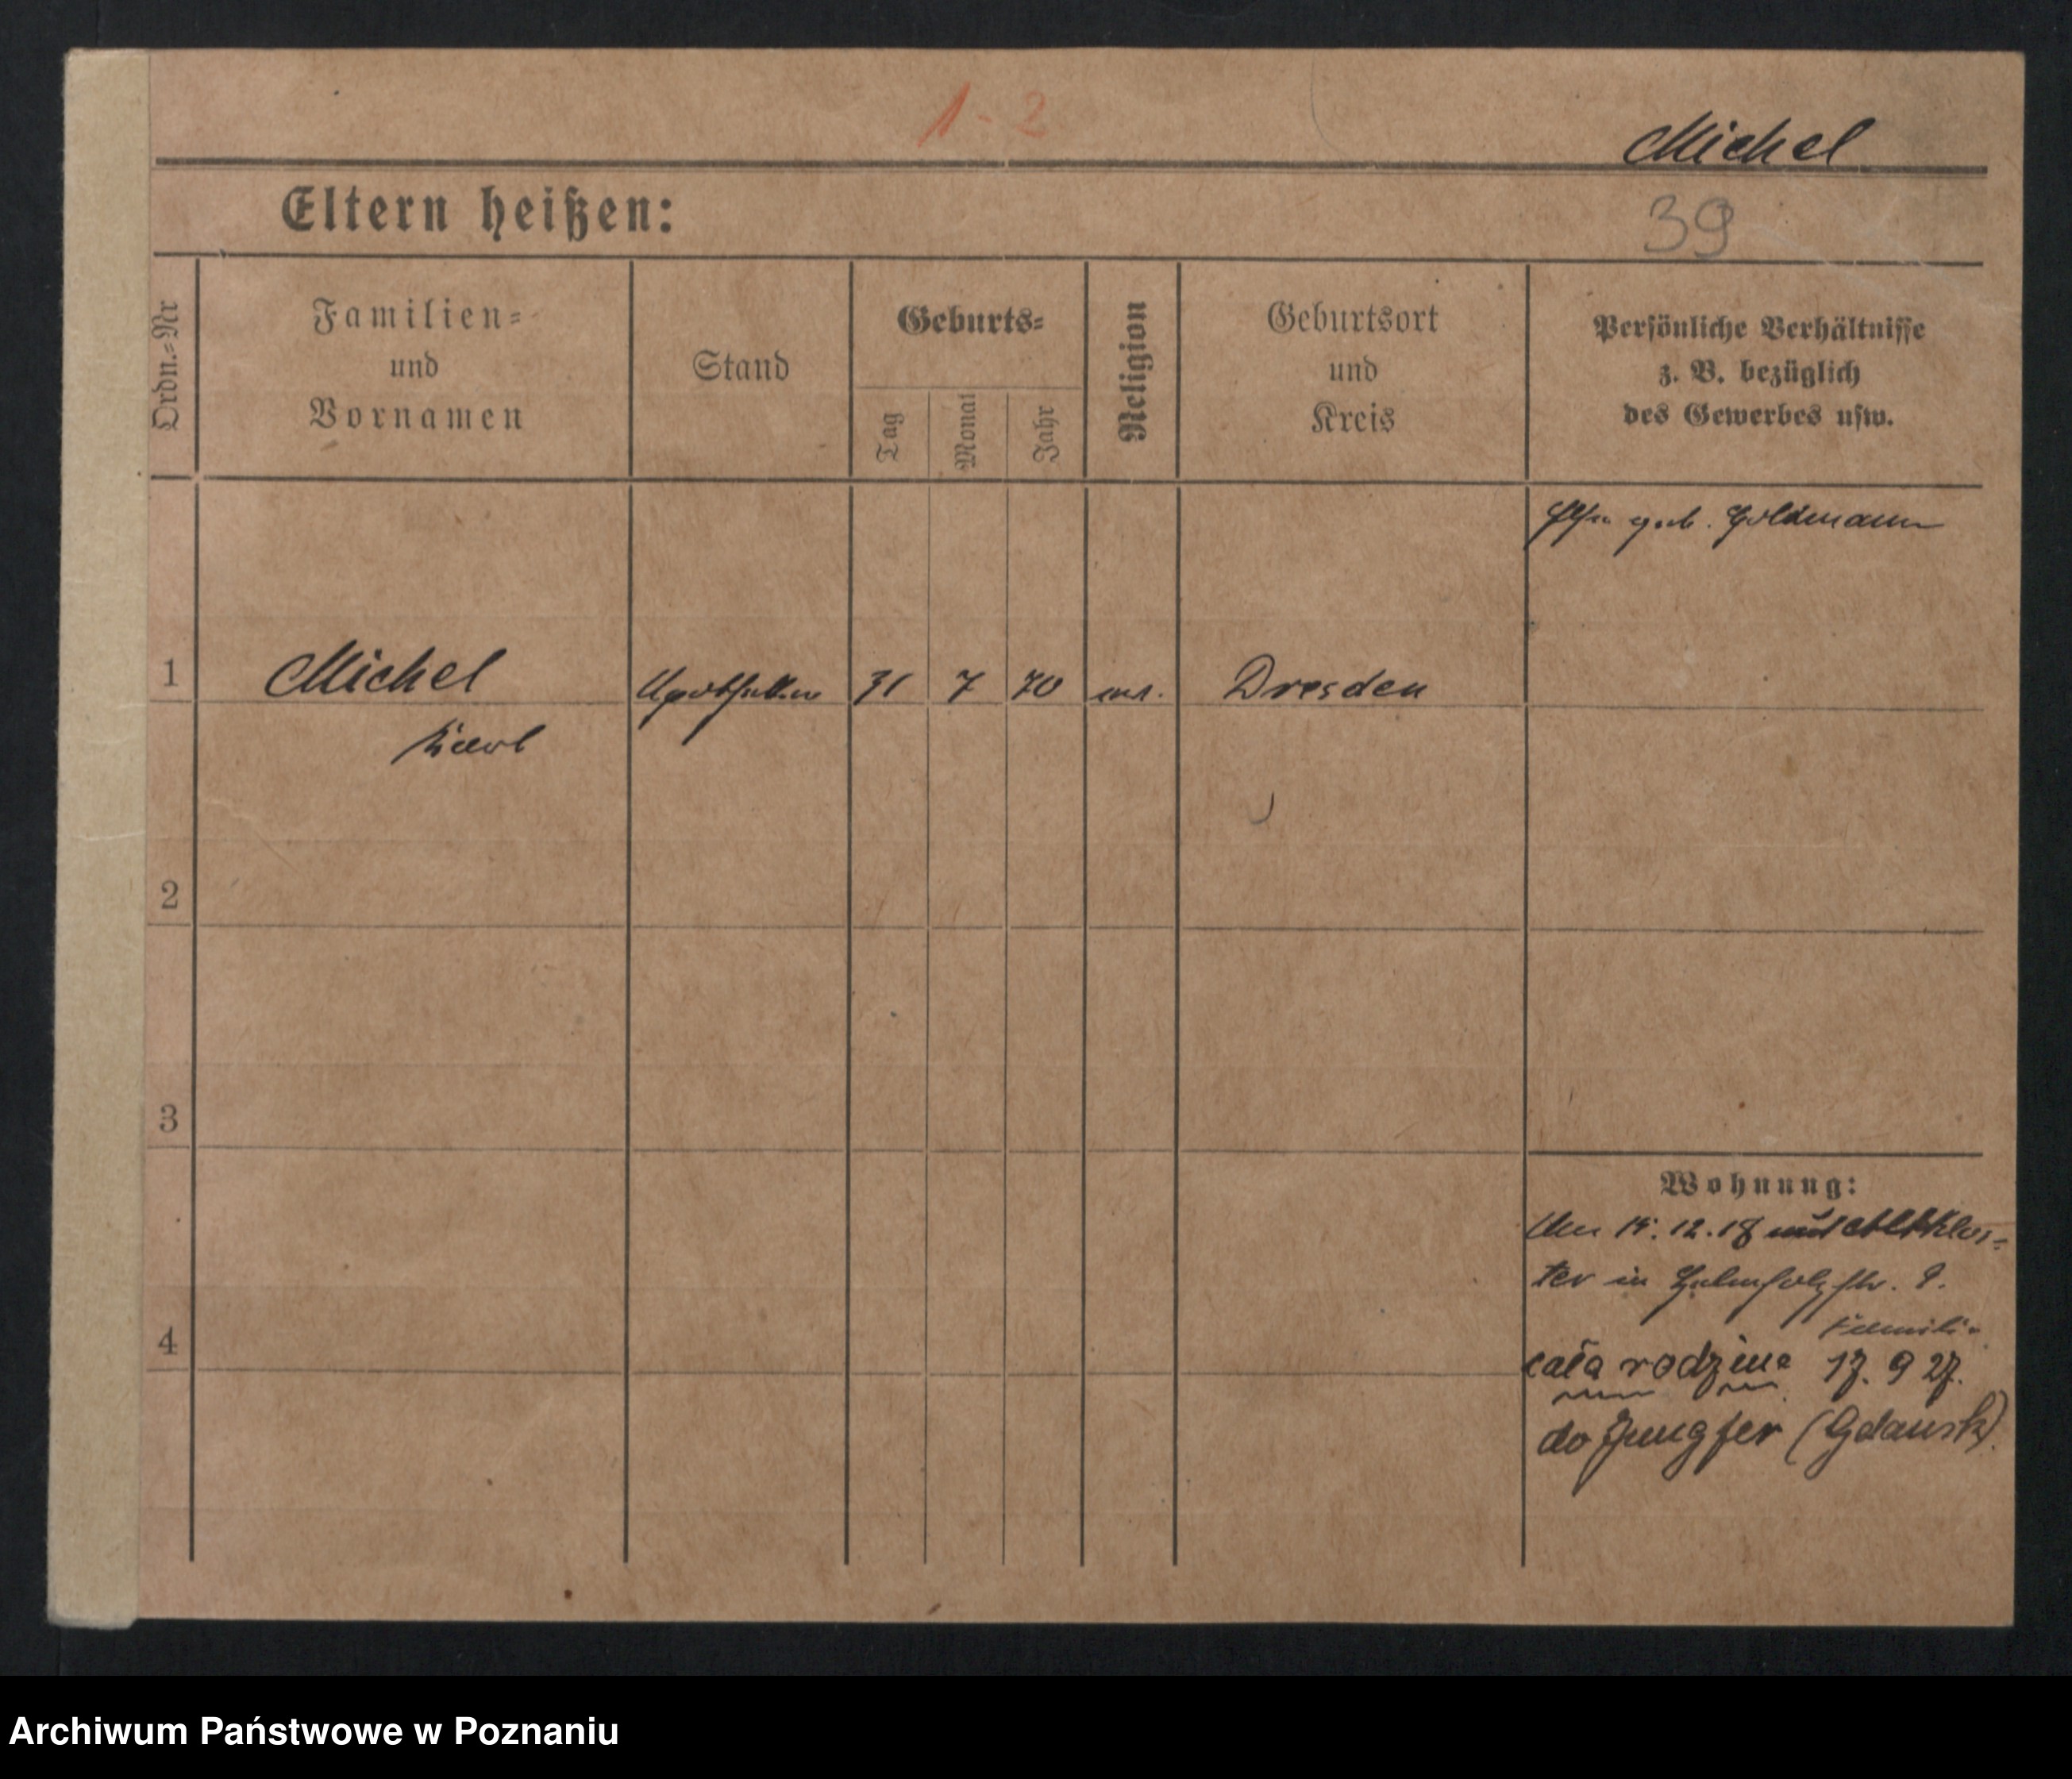 1-2
Michel
Eltern heißen:
39
Ordn.=Nr
Familien=
und
Vornamen
Stand
Geburts=
Tag
Monat
Jahr
Religion
Geburtsort
und
Kreis
Persönliche Verhältnisse
z. B. bezüglich
des Gewerbes usw.
geb. Goldmann
1
Michel
31
7
70
Dresden
Karl
2
3
Wohnung:
15. 12. 18 Altklos=
ter in
4
Familie
cała rodzina 17. 9 27.
do Jungfer (Gdansk)
Archiwum Państwowe w Poznaniu